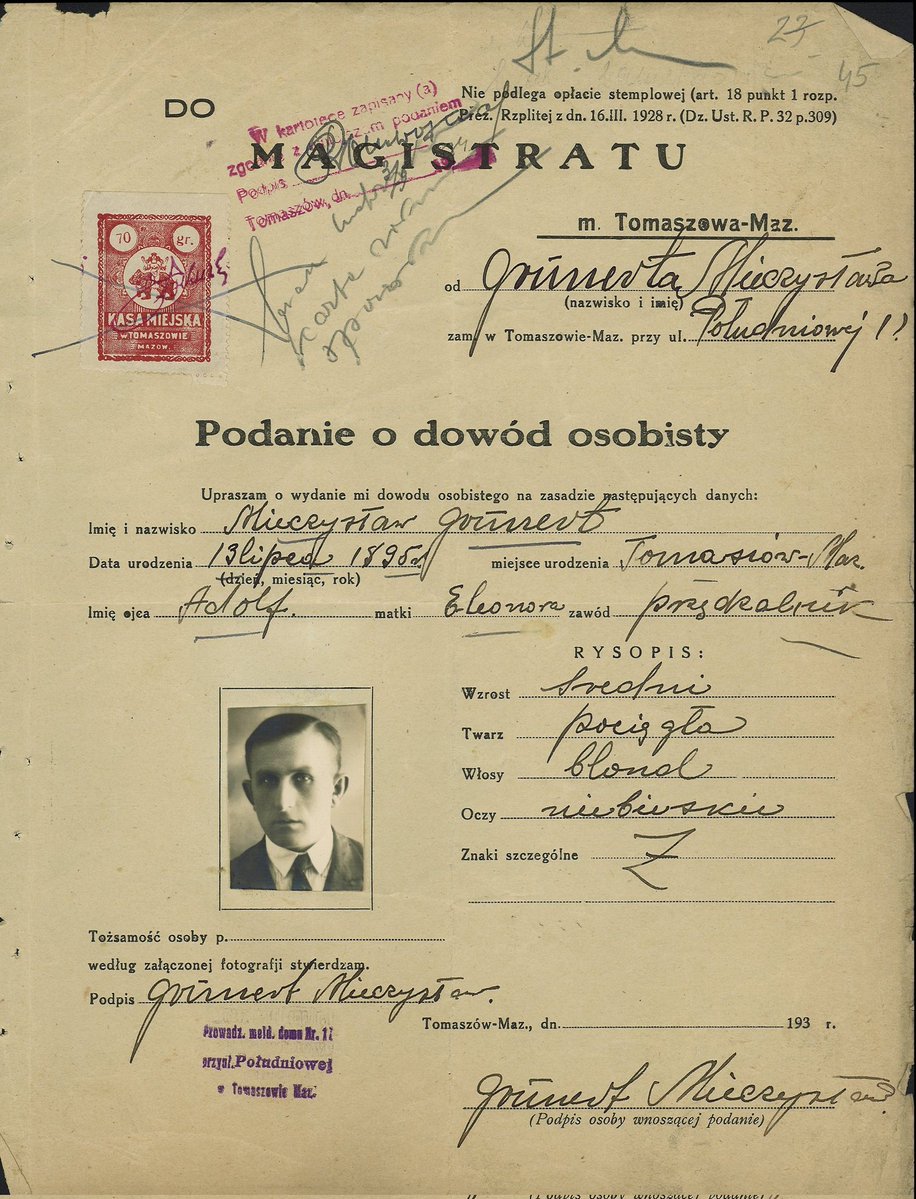 23
45
DO
Nie podlega opłacie stemplowej (art. 18 punkt 1 rozp.
Prez. Rzplitej z dn. 16.III. 1928 r. (Dz. Ust. R. P. 32 p.309)
W kartotece zapisany (a)
podaniem
Podpis
Tomaszów, dn.
MAGISTRATU
m. Tomaszowa-Maz.
70 gr.
KASA MIEJSKA
w TOMASZOWIE
MAZOW.
od Grünerta Mieczysława
(nazwisko i imię)
zam. w Tomaszowie-Maz. przy ul. Południowej 11
karta
Podanie o dowód osobisty
Upraszam o wydanie mi dowodu osobistego na zasadzie następujących danych:
Imię i nazwisko Mieczysław Grünert
Data urodzenia 13 lipca 1895 r. miejsce urodzenia Tomaszów-Maz.
(dzień, miesiąc, rok)
Imię ojca Adolf. matki Eleonora zawód przędzalnik
RYSOPIS:
Wzrost średni
Twarz pociągła
Włosy blond
Oczy niebieskie
Znaki szczególne
Tożsamość osoby p.
według załączonej fotografji stwierdzam.
Podpis Grünert Mieczysław.
Tomaszów-Maz., dn. 193 r.
Prowadz. meld. domu Nr. 11
przy ul. Południowej
w Tomaszowie Maz.
Grünert Mieczysław
(Podpis osoby wnoszącej podanie)